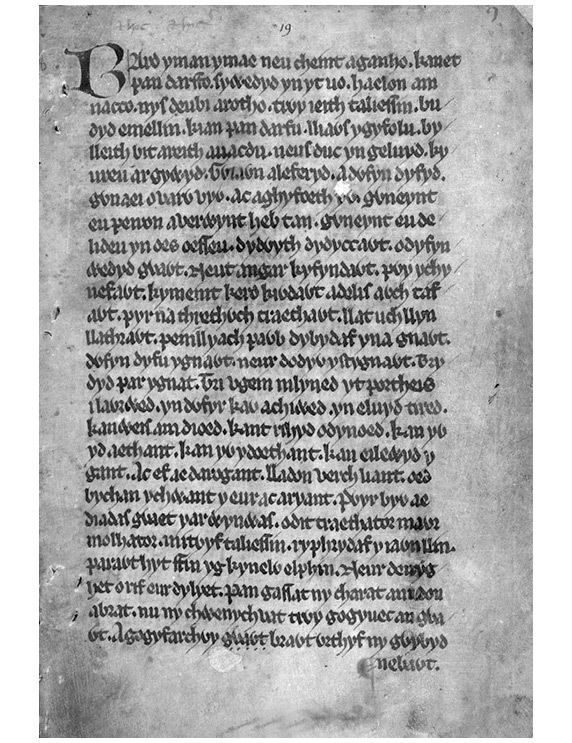 19
Bard yman ymae neu cheint aganho. kanet
pan darffo. sywedyd yn yt uo. haelon am
nacco. nys deubi arotho. trỽy ieith taliessin. bu
dyd emellin. kian pan darfu. lliaỽs ygyfolu. by
lleith bit areith auacdu. neus duc yn geluyd. ky
ureu argywyd. Gỽiaỽn aleferyd. adỽfyn dyfyd.
gỽnaei o varỽ vyỽ. ac aghyfoeth yỽ. gỽneynt
eu peiron averwynt heb tan. gỽneynt eu de
lideu yn oes oesseu. dydỽyth dydyccaỽt. odyfyn
wedyd gỽaỽt. Neut angar kyfyndaỽt. pỽy ychy
nefaỽt. kymeint kerd kiỽdaỽt. adelis aỽch taf
aỽt. pyr na threthỽch traethaỽt. llat uch llyn
llathraỽt. penillyach paỽb dybydaf yna gnaỽt.
dỽfyn dyfu ygnaỽt. neur dodyỽ ystygnaỽt. Try
dyd par ygnat. Tri vgein mlyned yt portheis
i laỽrwed. yn dỽfyr kaỽ achiwed. yn eluyd tired.
kanweis am dioed. kant rihyd odynoed. kan yỽ
yd aethant. kan yỽ ydoethant. kan eilewyd y
gant. Ac ef ae darogant. lladon verch liant. oed
bychan ychwant y eur ac aryant. Pỽyr byỽ ae
diadas gỽaet yar wynwas. odit traethator maỽr
molhator. mitỽyf taliessin. ryphrydaf y iaỽn llin.
paraỽt hyt ffin yg kynelỽ elphin. Neur deiryg
het o rif eur dylyet. Pan gassat ny charat anudon
abrat. nu ny chwenychvat trỽy gogyuec an gỽa
ỽt. A gogyfarchỽy braỽt ỽrthyf ny gỽybyd
nebaỽt.